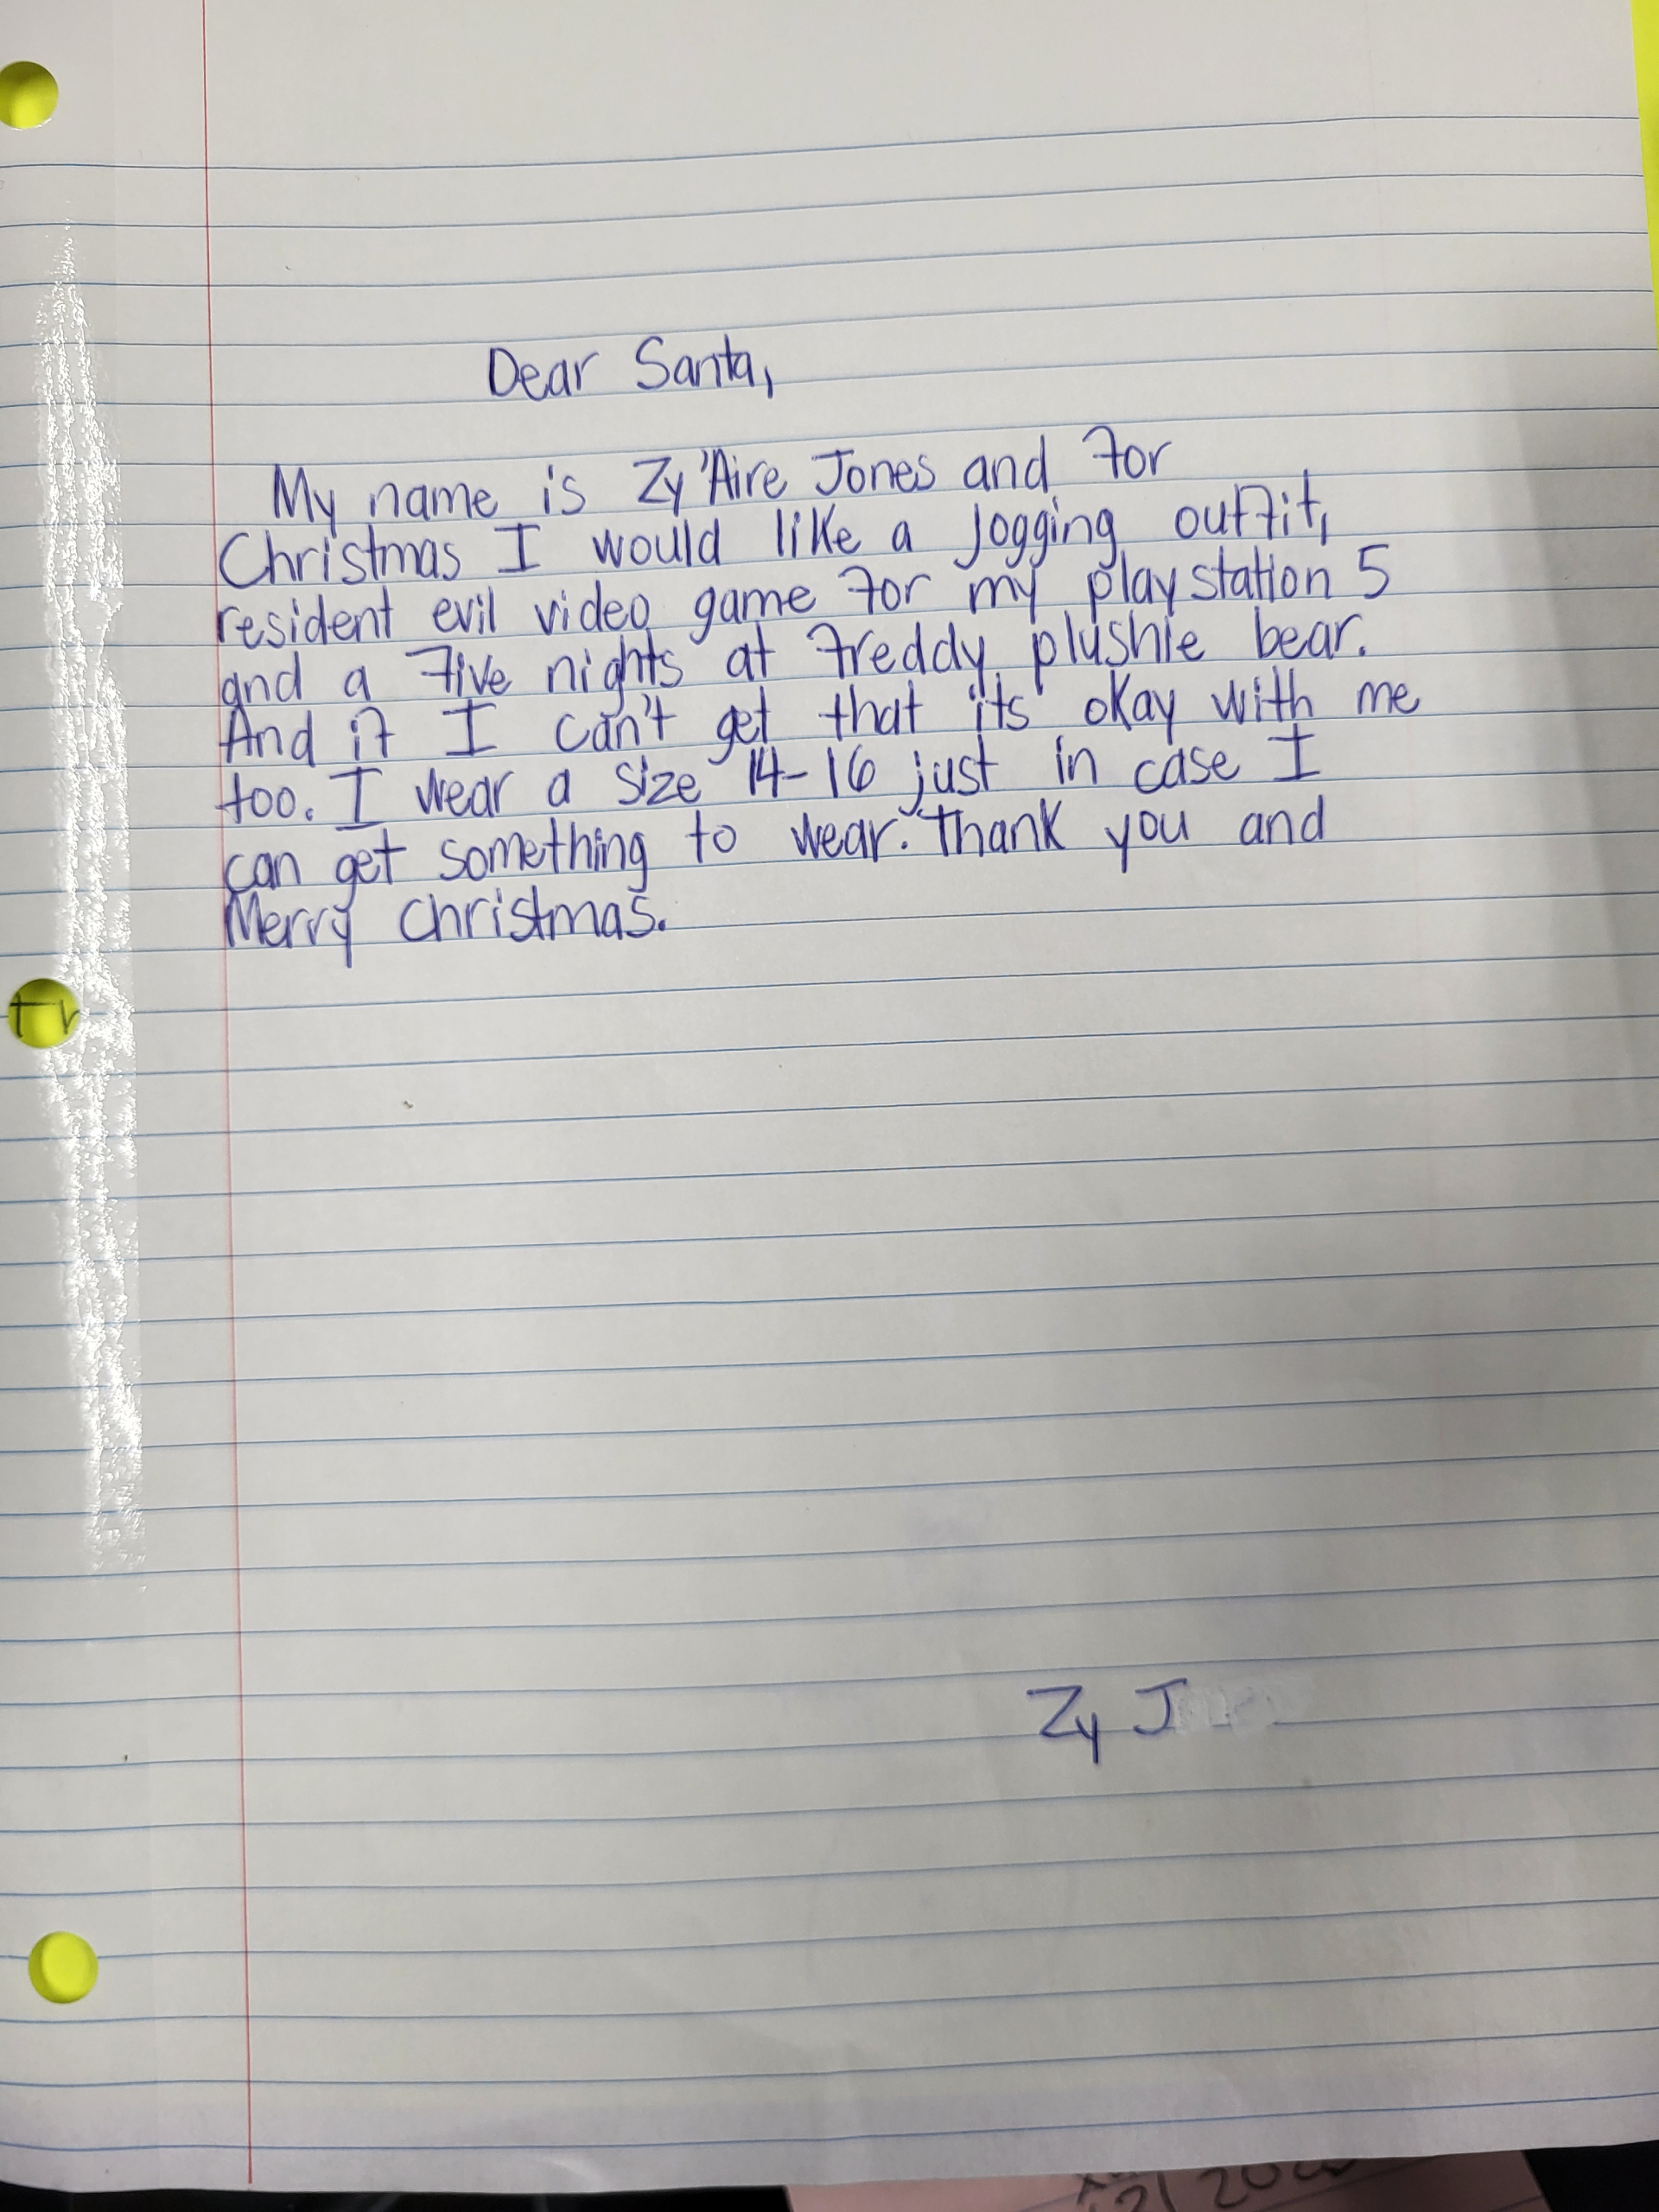 Dear Santa,
My name is Zy'Aire Jones and for
Christmas I would like a jogging outfit,
resident evil video game for my playstation 5
and a five nights at freddy plushie bear.
And if I can't get that its okay with me
too. I wear a size 14-16 just in case I
can get something to wear. Thank you and
Merry Christmas.
Zy J